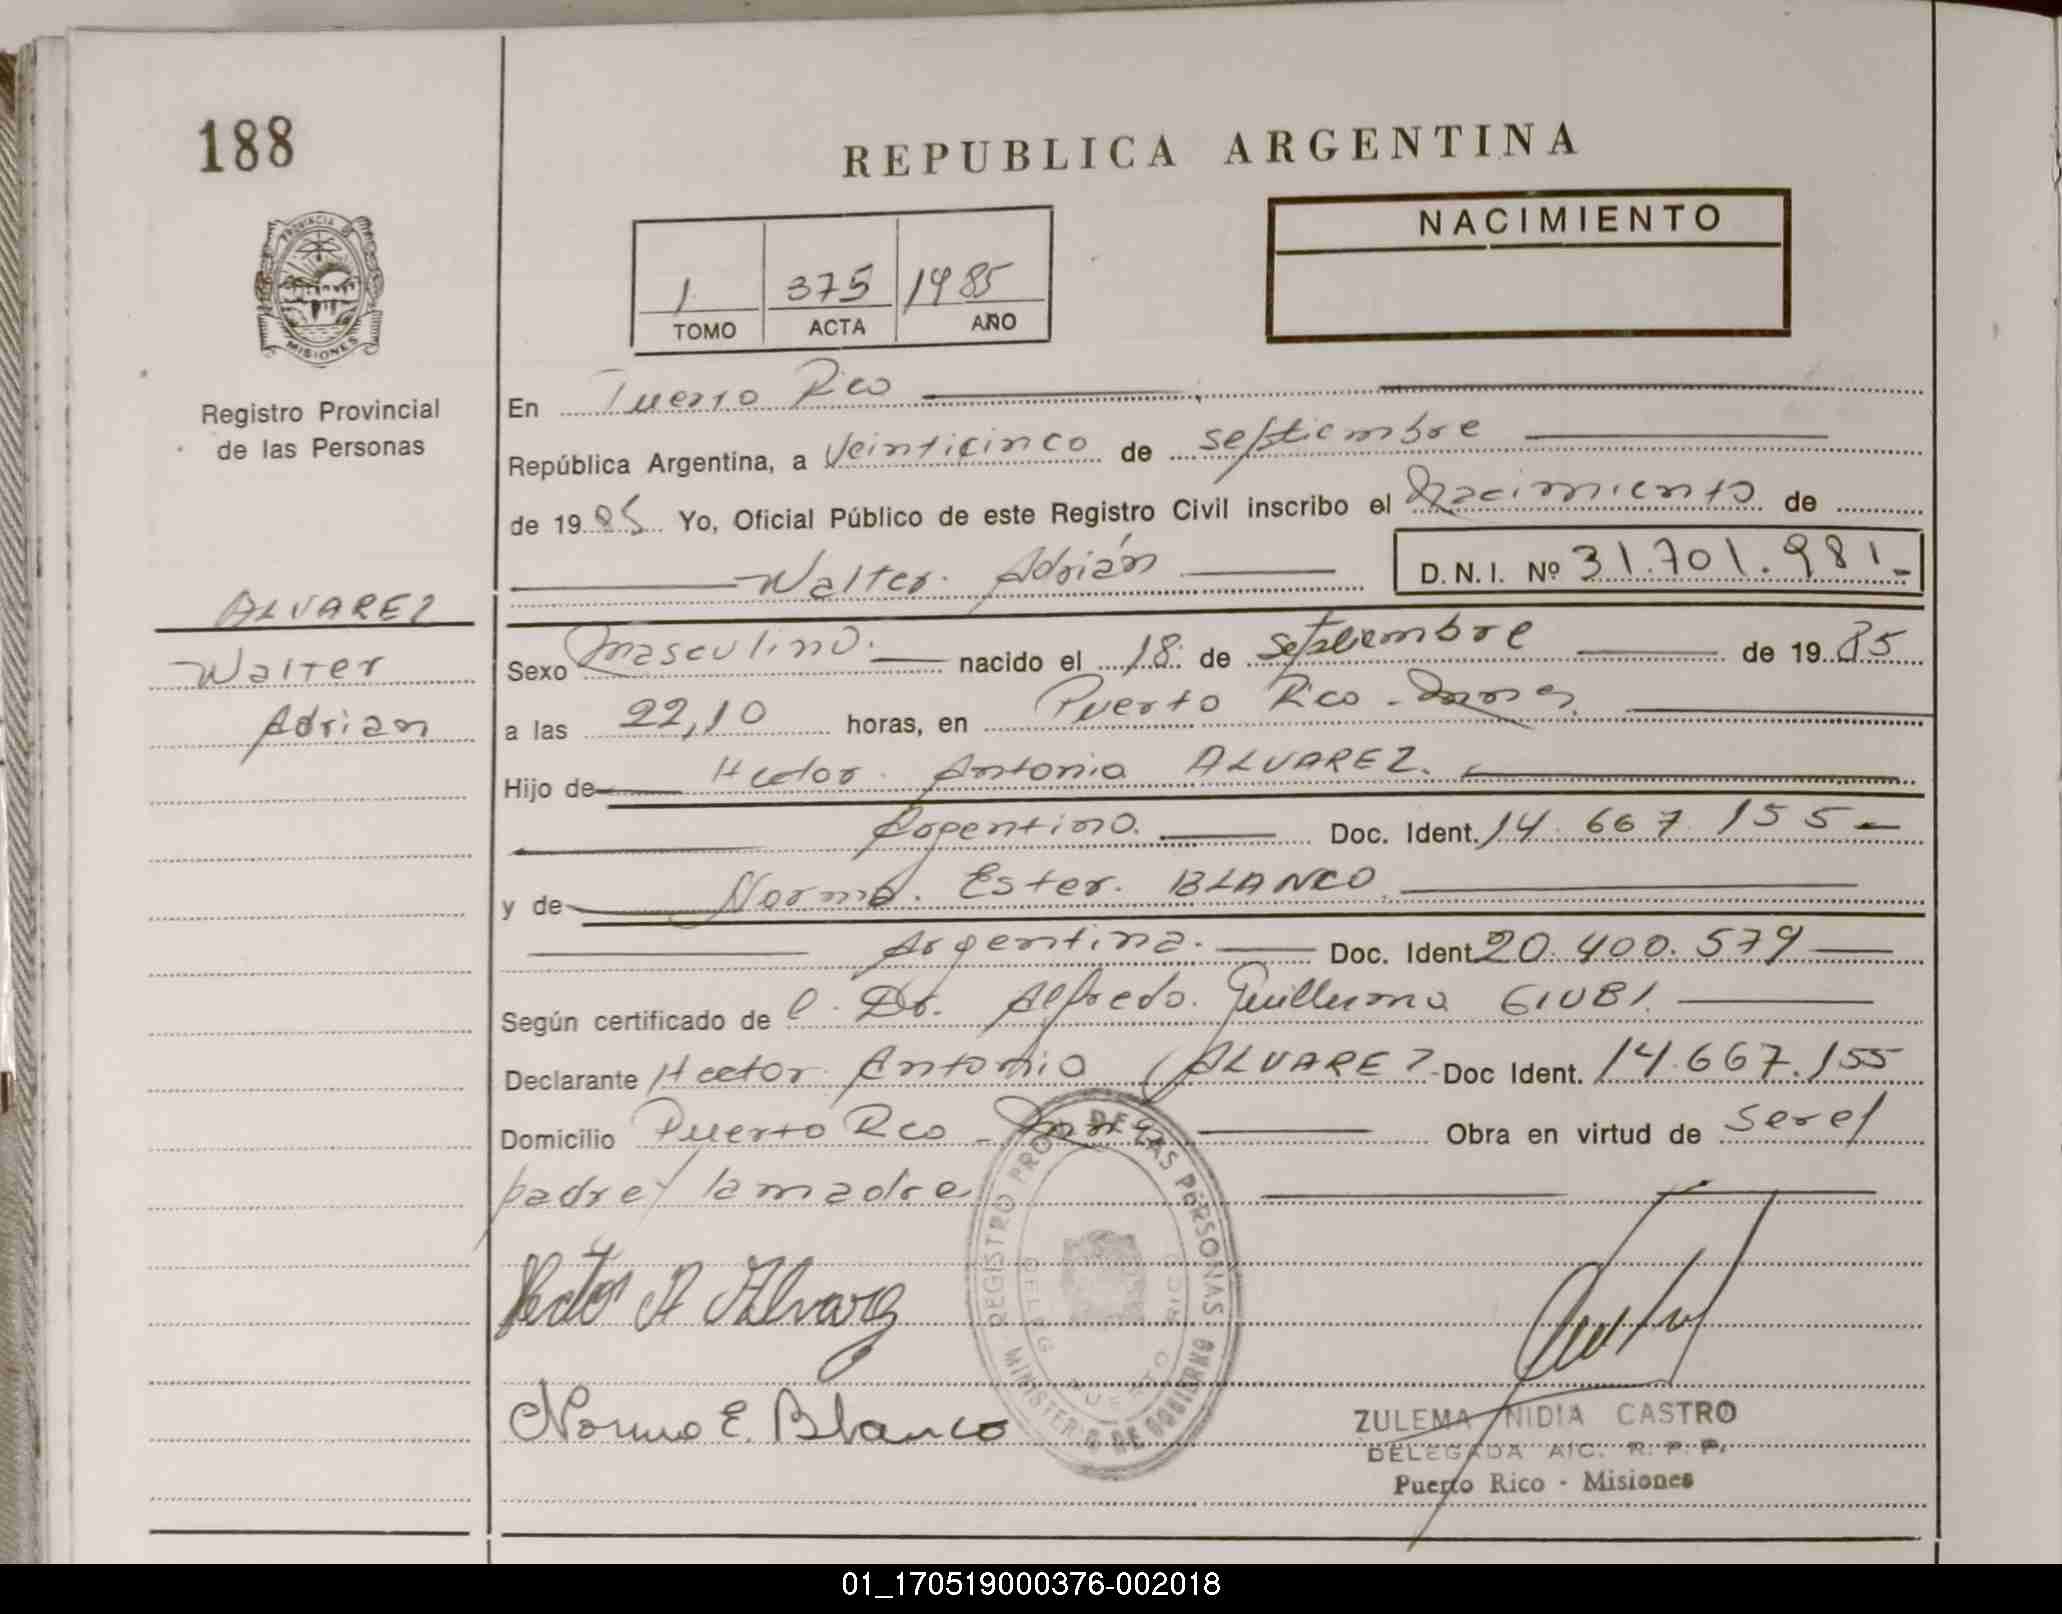 188
REPUBLICA ARGENTINA
PROVINCIA
MISIONES
NACIMIENTO
1 375 1985
TOMO ACTA AÑO
Registro Provincial
de las Personas
En Puerto Rico
República Argentina, a veinticinco de septiembre
de 1985 Yo, Oficial Público de este Registro Civil inscribo el Nacimiento de
Walter Adrián D.N.I. Nº 31.701.981-
ALVAREZ
Walter
Adrian
Sexo masculino. nacido el 18 de septiembre de 1985
a las 22,10 horas, en Puerto Rico -
Hijo de Hector Antonio ALVAREZ.
Argentino. Doc. Ident. 14.667.155-
y de Norma Ester BLANCO
Argentina. Doc. Ident. 20.400.579
Según certificado de l. Dr. Alfredo Guillermo GIUBI.
Declarante Hector Antonio ALVAREZ Doc Ident. 14.667.155
Domicilio Puerto Rico - Obra en virtud de ser el
padre y la madre
Hector A Alvarez
Norma E. Blanco
REGISTRO PROV. DE LAS PERSONAS
MINISTERIO DE GOBIERNO
DELEG. PUERTO RICO
ZULEMA NIDIA CASTRO
DELEGADA A/C. R. P. P.
Puerto Rico - Misiones
01_170519000376-002018